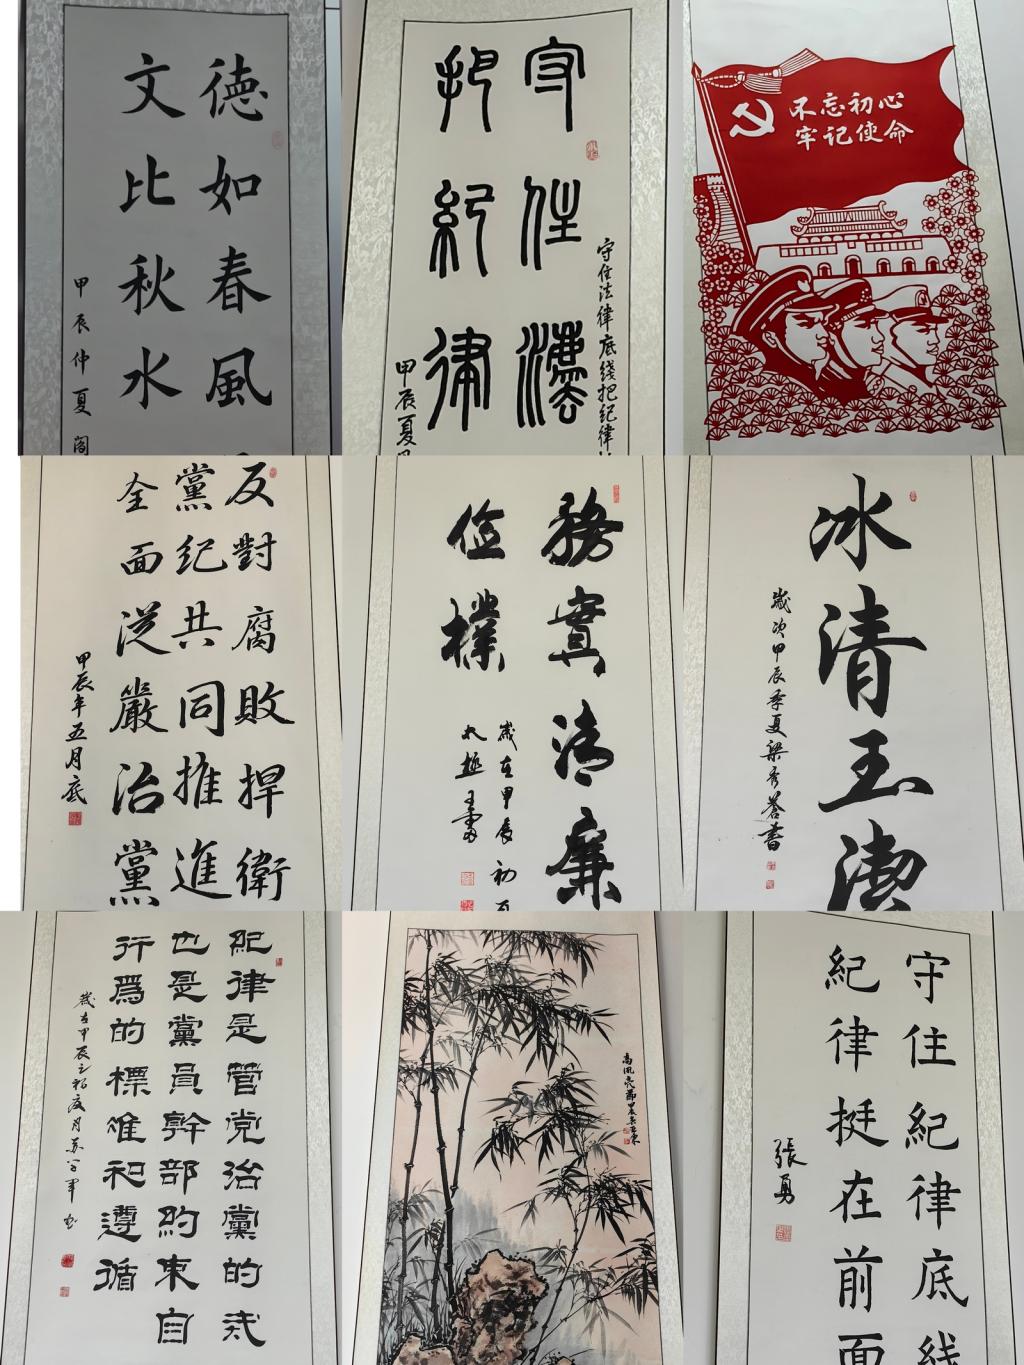 德如春風
文比秋水
甲辰仲夏 閻
守住灋
把紀律
守住法律底綫把紀律
甲辰夏
不忘初心
牢记使命
反對腐敗捍衛
黨紀共同推進
全面從嚴治黨
甲辰年五月底
務實清廉
儉樸
歲在甲辰初夏
冰清玉潔
歲次甲辰季夏梁秀苍書
紀律是管党治黨的戒
也是黨員幹部約束自
行為的標准和遵循
高風亮節
守住紀律底线
紀律挺在前面
張勇